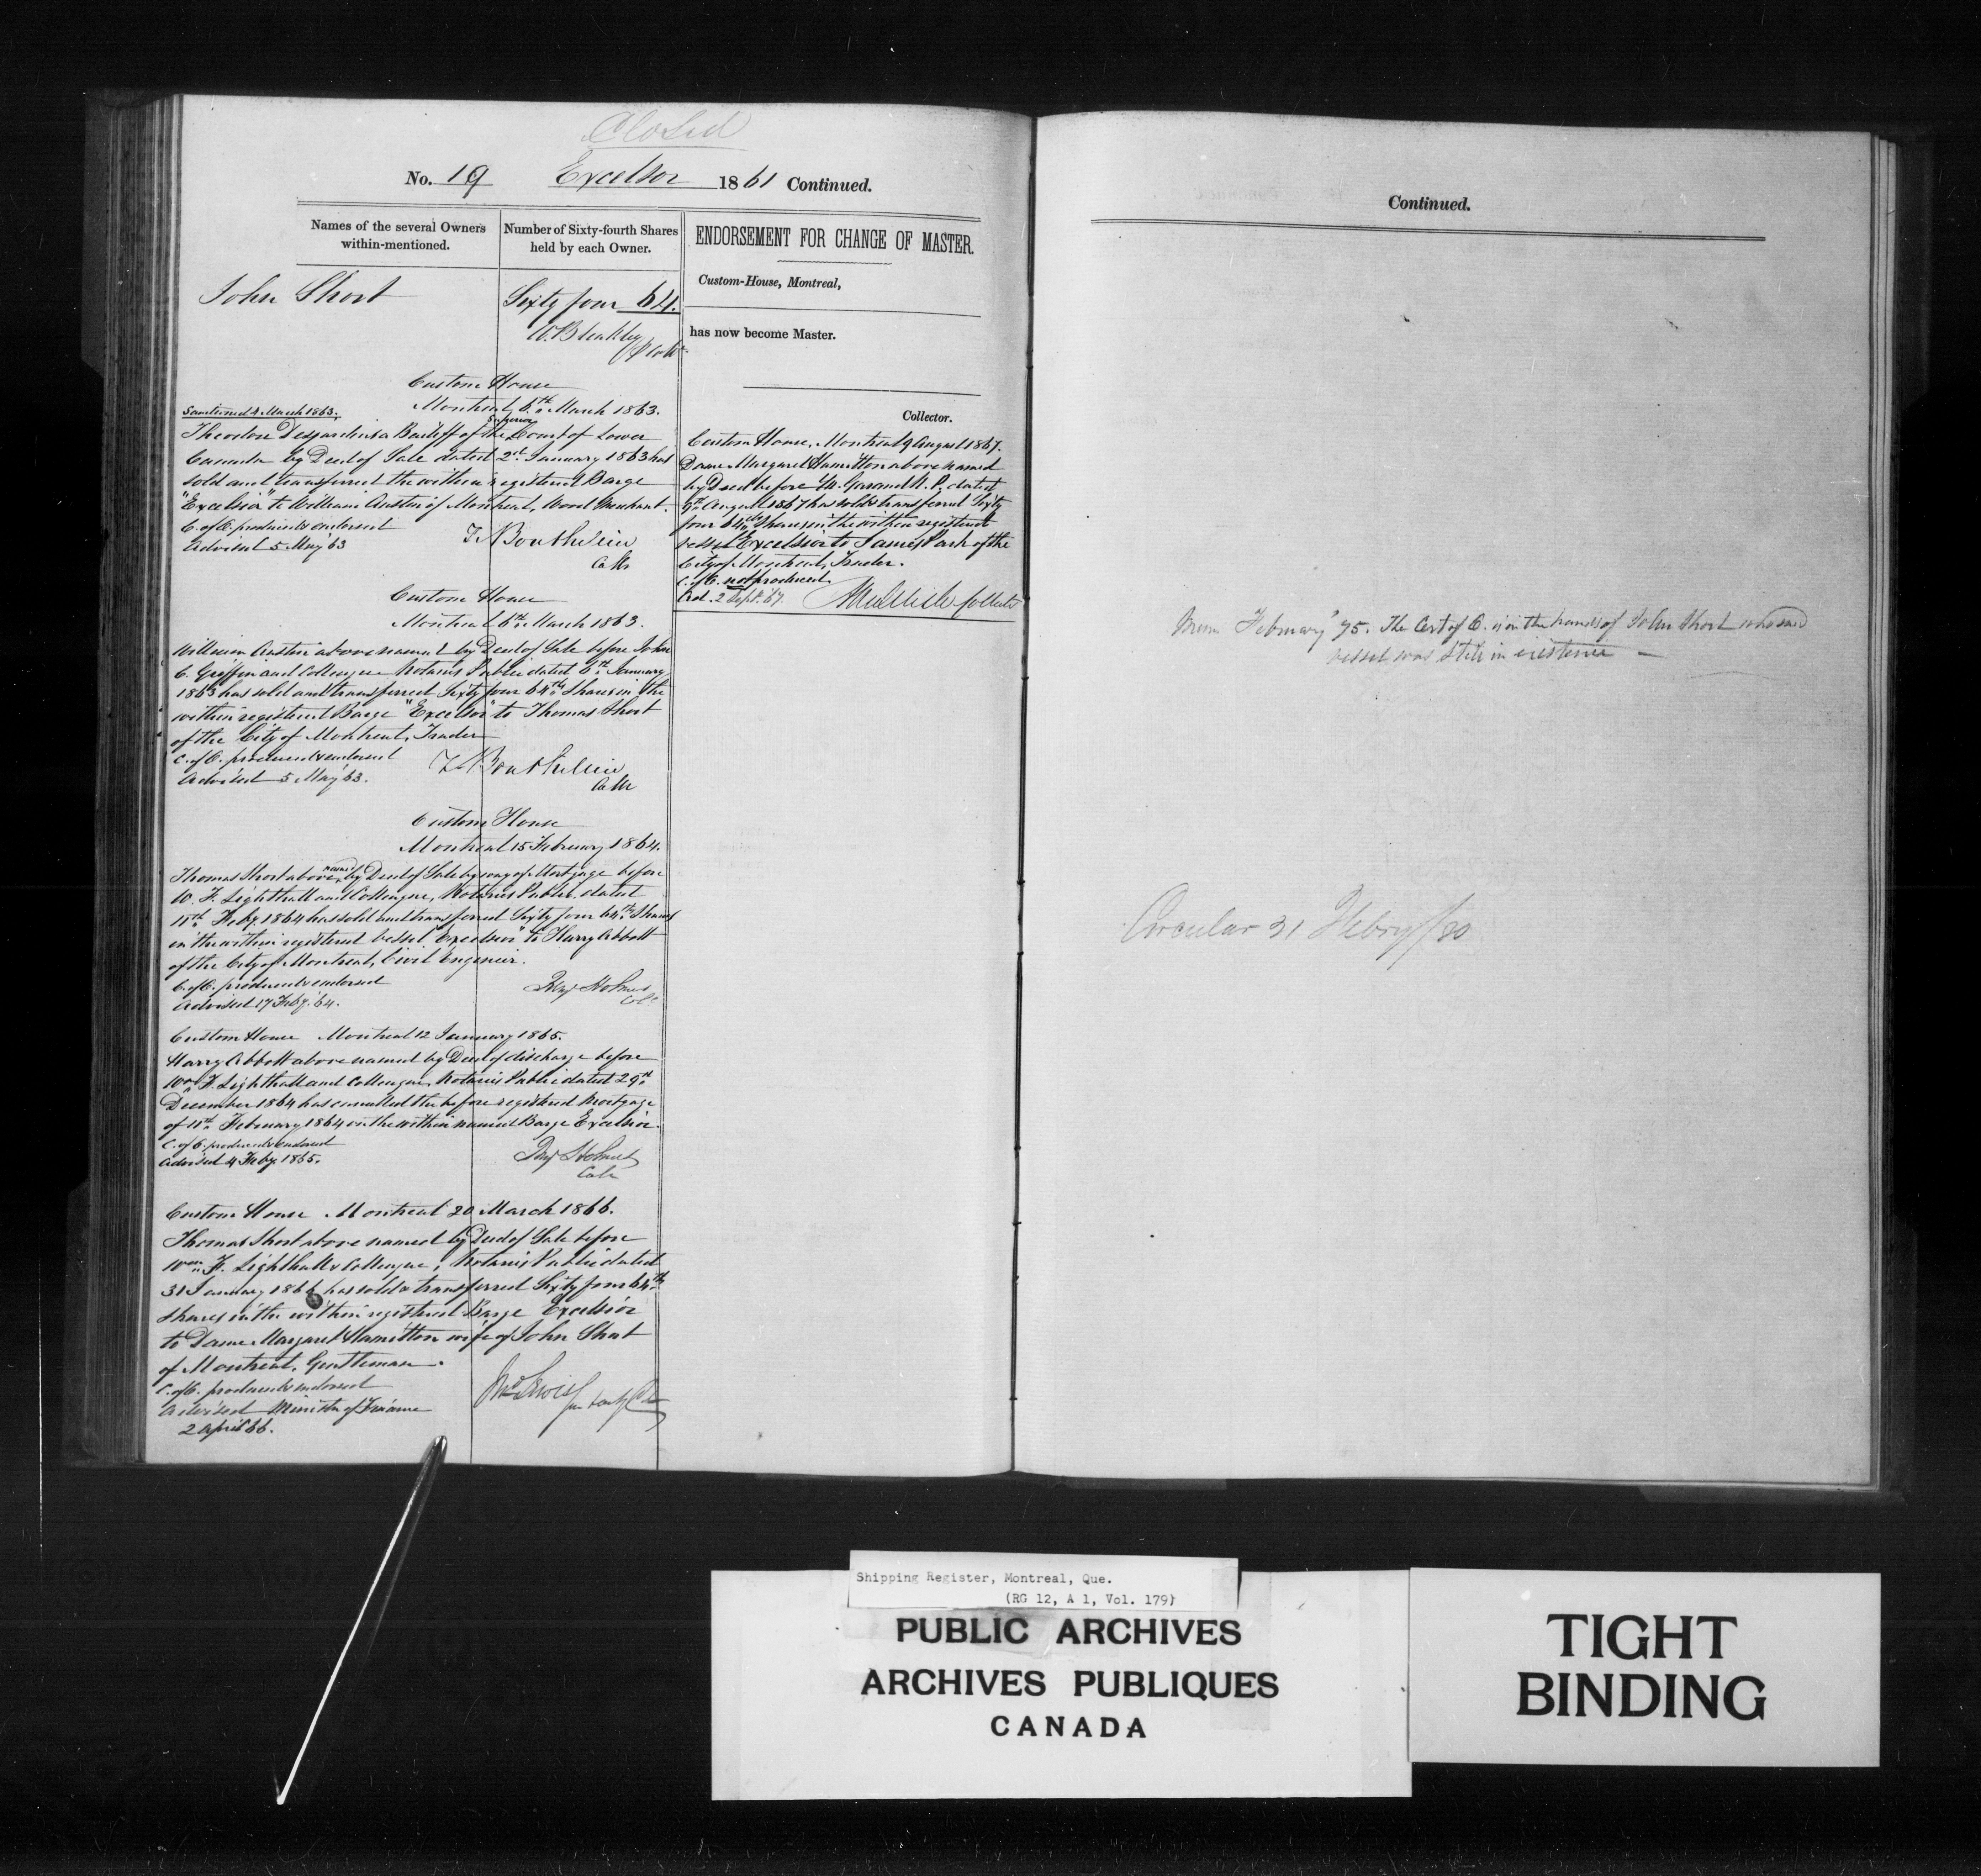 Closed
No. 19 Excelsor 1861 Continued.
Names of the several Owners within-mentioned.
Number of Sixty-fourth Shares held by each Owner.
John Short
Sixty four 64.
W. Bleakley
Custom House
Montreal, 6th March 1863.
Sanctioned 4 March 1863.
Theodore Desjardins a Bailiff of the Superior Court of Lower
Canada by Deed of Sale dated 2nd January 1863 has
sold and transferred the within registered Barge
"Excelsior" to William Austin of Montreal, Wood Merchant.
C. of O. produced & endorsed
Advised 5 May 63
T. Bouthillier
Colr
Custom House
Montreal 6th March 1863.
William Austin above named by Deed of Sale before John
C. Griffin and Colleague Notaries Public dated 6th January
1863 has sold and transferred Sixty four 64th Shares in the
within registered Barge "Excelsior" to Thomas Short
of the City of Montreal, Trader
C. of O. produced & endorsed
Advised 5 May 63.
T. Bouthillier
Colr
Custom House
Montreal 15 February 1864.
Thomas Short above named by Deed of Sale by way of Mortgage before
W. F. Lighthall and Colleague, Notaries Public dated
11th Feby 1864 has sold and transferred Sixty four 64th Shares
in the within registered vessel "Excelsior" to Harry Abbott
of the City of Montreal, Civil Engineer.
C. of O. produced & endorsed
Advised 17 Feby. 64.
Benj Holmes
Colr
Custom House Montreal 12 January 1865.
Harry Abbott above named by Deed of discharge before
Wm F. Lighthall and Colleague, Notaries Public dated 29th
December 1864 has cancelled the before registered Mortgage
of 11th February 1864 on the within named Barge Excelsior.
C. of O. produced & endorsed
Advised 4 Feby 1865.
Benj Holmes
Colr
Custom House Montreal 20 March 1866.
Thomas Short above named by Deed of Sale before
Wm F. Lighthall & Colleague, Notaries Public dated
31 January 1866 has sold & transferred Sixty four 64th
shares in the within registered Barge Excelsior
to Dame Margaret Hamilton wife of John Short
of Montreal, Gentleman.
C. of O. produced & endorsed
Advised Minister of Finance
2 April 66.
Jno Lewis
ENDORSEMENT FOR CHANGE OF MASTER.
Custom-House, Montreal,
has now become Master.
Collector.
Custom House, Montreal 9 August 1867.
Dame Margaret Hamilton above named
by Deed before M. Garand N. P. dated
9th August 1867 has sold & transferred Sixty
four 64th Shares in the within registered
vessel Excelsior to James Park of the
City of Montreal, Trader.
C. of O. not produced.
Ad. 2 Sept. 67.
Collector
Continued.
Mem February 75. The Cert of O. is in the hands of John Short who said
vessel was still in existence —
Circular 21 Febry/80
Shipping Register, Montreal, Que.
(RG 12, A 1, Vol. 179)
PUBLIC ARCHIVES
ARCHIVES PUBLIQUES
CANADA
TIGHT
BINDING